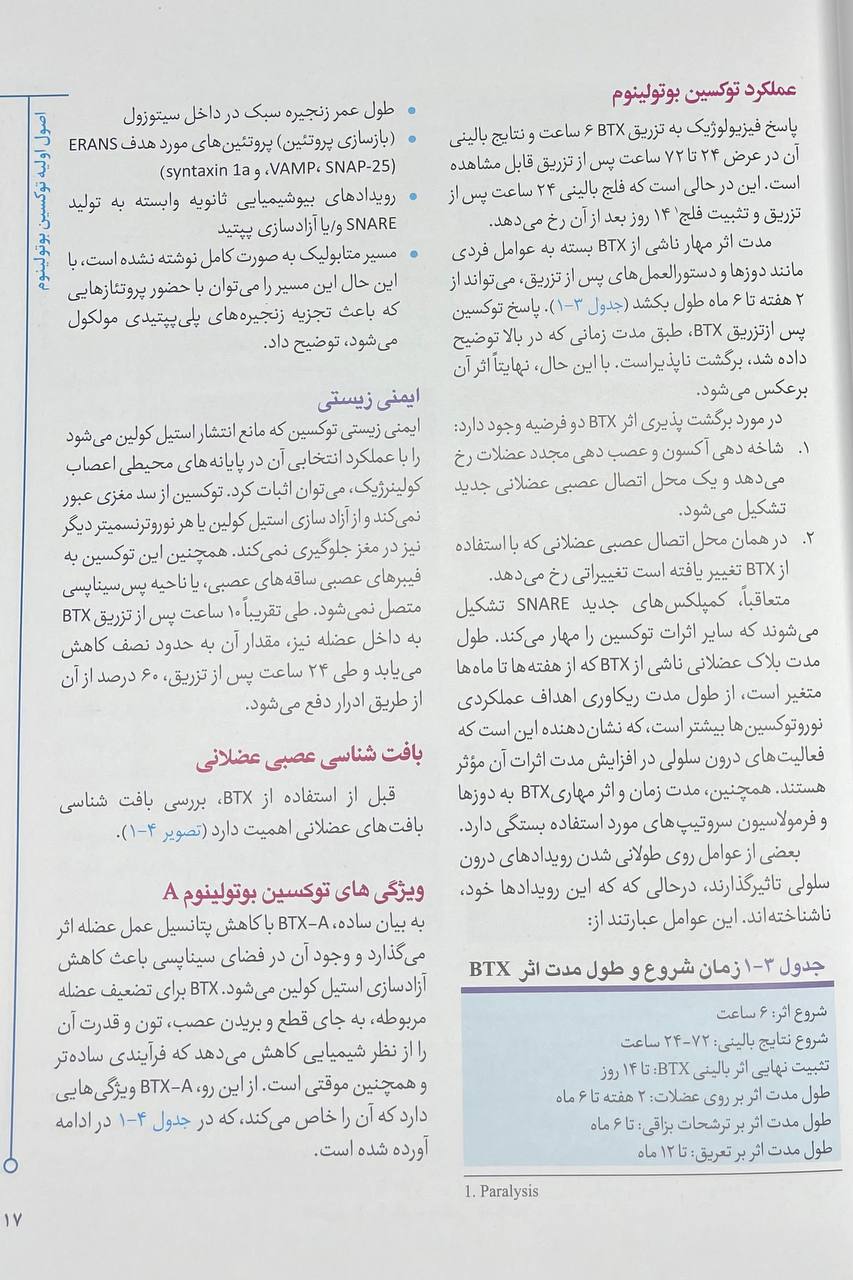 عملکرد توکسین بوتولینوم
پاسخ فیزیولوژیک به تزریق BTX ۶ ساعت و نتایج بالینی
آن در عرض ۲۴ تا ۷۲ ساعت پس از تزریق قابل مشاهده
است. این در حالی است که فلج بالینی ۲۴ ساعت پس از
تزریق و تثبیت فلج۱ ۱۴ روز بعد از آن رخ می‌دهد.
مدت اثر مهار ناشی از BTX بسته به عوامل فردی
مانند دوزها و دستورالعمل‌های پس از تزریق، می‌تواند از
۲ هفته تا ۶ ماه طول بکشد (جدول ۳-۱). پاسخ توکسین
پس ازتزریق BTX، طبق مدت زمانی که در بالا توضیح
داده شد، برگشت ناپذیراست. با این حال، نهایتاً اثر آن
برعکس می‌شود.
در مورد برگشت پذیری اثر BTX دو فرضیه وجود دارد:
۱. شاخه دهی آکسون و عصب دهی مجدد عضلات رخ
می‌دهد و یک محل اتصال عصبی عضلانی جدید
تشکیل می‌شود.
۲. در همان محل اتصال عصبی عضلانی که با استفاده
از BTX تغییر یافته است تغییراتی رخ می‌دهد.
متعاقباً، کمپلکس‌های جدید SNARE تشکیل
می‌شوند که سایر اثرات توکسین را مهار می‌کند. طول
مدت بلاک عضلانی ناشی از BTX که از هفته‌ها تا ماه‌ها
متغیر است، از طول مدت ریکاوری اهداف عملکردی
نوروتوکسین‌ها بیشتر است، که نشان‌دهنده این است که
فعالیت‌های درون سلولی در افزایش مدت اثرات آن مؤثر
هستند. همچنین، مدت زمان و اثر مهاریBTX به دوزها
و فرمولاسیون سروتیپ‌های مورد استفاده بستگی دارد.
بعضی از عوامل روی طولانی شدن رویدادهای درون
سلولی تاثیرگذارند، درحالی که که این رویدادها خود،
ناشناخته‌اند. این عوامل عبارتند از:
جدول ۳-۱ زمان شروع و طول مدت اثر BTX
شروع اثر: ۶ ساعت
شروع نتایج بالینی: ۷۲-۲۴ ساعت
تثبیت نهایی اثر بالینی BTX: تا ۱۴ روز
طول مدت اثر بر روی عضلات: ۲ هفته تا ۶ ماه
طول مدت اثر بر ترشحات بزاقی: تا ۶ ماه
طول مدت اثر بر تعریق: تا ۱۲ ماه
1. Paralysis
• طول عمر زنجیره سبک در داخل سیتوزول
• (بازسازی پروتئین) پروتئین‌های مورد هدف ERANS
(VAMP، SNAP-25، و syntaxin 1a)
• رویدادهای بیوشیمیایی ثانویه وابسته به تولید
SNARE و/یا آزادسازی پپتید
• مسیر متابولیک به صورت کامل نوشته نشده است، با
این حال این مسیر را می‌توان با حضور پروتئازهایی
که باعث تجزیه زنجیره‌های پلی‌پپتیدی مولکول
می‌شود، توضیح داد.
ایمنی زیستی
ایمنی زیستی توکسین که مانع انتشار استیل کولین می‌شود
را با عملکرد انتخابی آن در پایانه‌های محیطی اعصاب
کولینرژیک، می‌توان اثبات کرد. توکسین از سد مغزی عبور
نمی‌کند و از آزاد سازی استیل کولین یا هر نوروترنسمیتر دیگر
نیز در مغز جلوگیری نمی‌کند. همچنین این توکسین به
فیبرهای عصبی ساقه‌های عصبی، یا ناحیه پس‌سیناپسی
متصل نمی‌شود. طی تقریباً ۱۰ ساعت پس از تزریق BTX
به داخل عضله نیز، مقدار آن به حدود نصف کاهش
می‌یابد و طی ۲۴ ساعت پس از تزریق، ۶۰ درصد از آن
از طریق ادرار دفع می‌شود.
بافت شناسی عصبی عضلانی
قبل از استفاده از BTX، بررسی بافت شناسی
بافت‌های عضلانی اهمیت دارد (تصویر ۴-۱).
ویژگی های توکسین بوتولینوم A
به بیان ساده، BTX-A با کاهش پتانسیل عمل عضله اثر
می‌گذارد و وجود آن در فضای سیناپسی باعث کاهش
آزادسازی استیل کولین می‌شود. BTX برای تضعیف عضله
مربوطه، به جای قطع و بریدن عصب، تون و قدرت آن
را از نظر شیمیایی کاهش می‌دهد که فرآیندی ساده‌تر
و همچنین موقتی است. از این رو، BTX-A ویژگی‌هایی
دارد که آن را خاص می‌کند، که در جدول ۴-۱ در ادامه
آورده شده است.
اصول اولیه توکسین بوتولینوم
۱۷